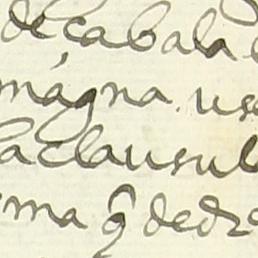 de cabala
magna. usa
la clausul
ma q̃ de dr